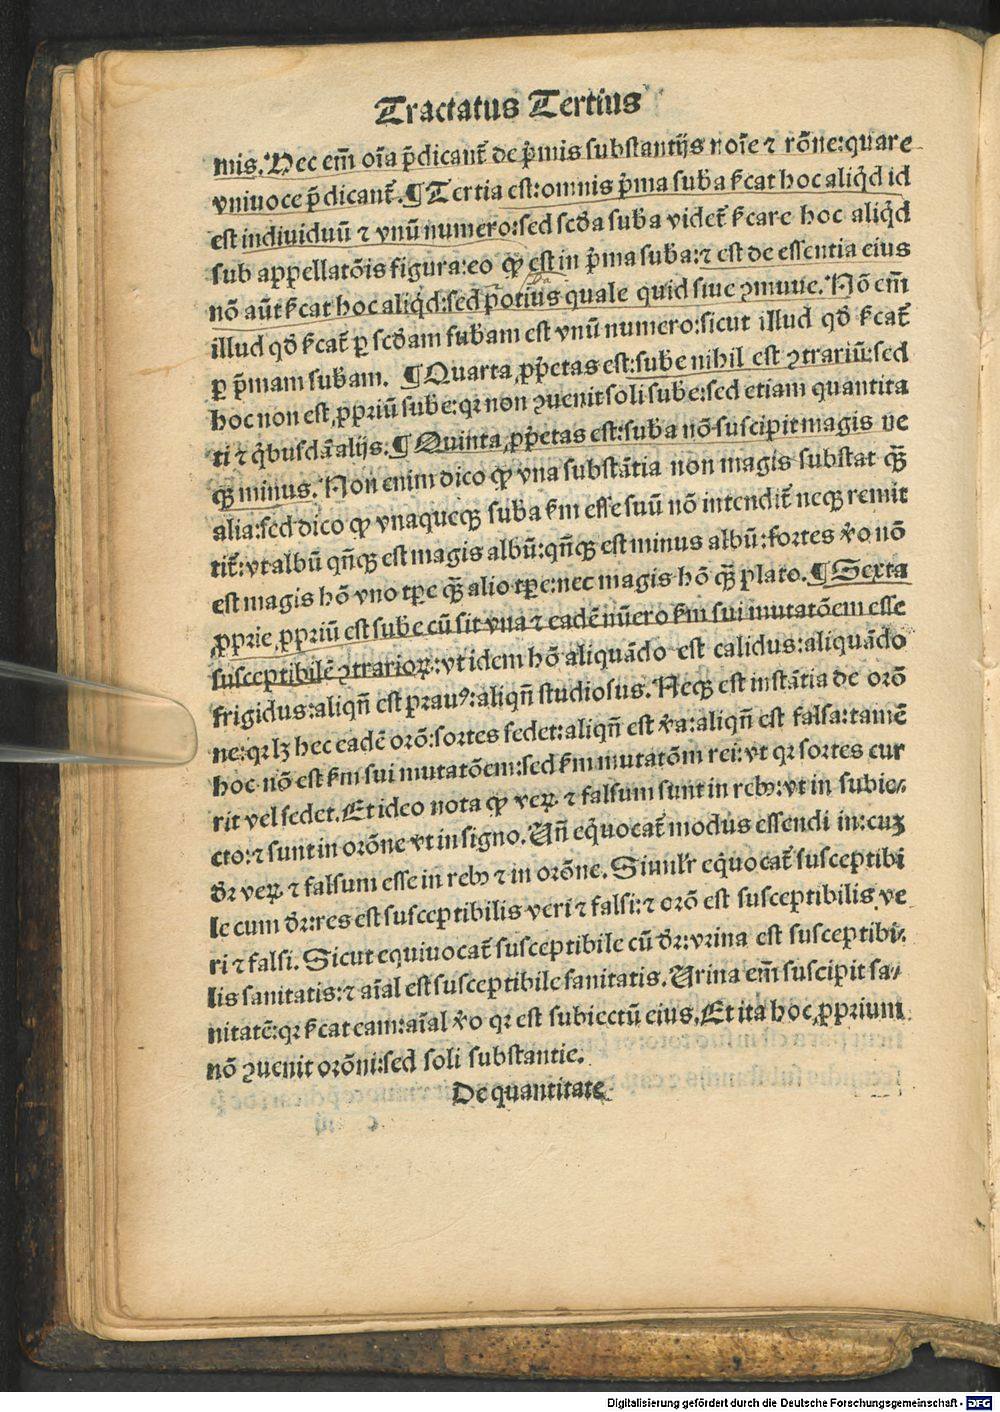 Tractatus Tertius
mis. Hec em̄ oīa p̄dicant᷑ de p̄mis substantijs noīe ⁊ rōne: quare
vniuoce p̄dicant᷑. ¶ Tertia est: omnis p̄ma suba ſ̄cat hoc aliq̇d id
est indiuiduū ⁊ vnū numero: sed scd̄a suba videt᷑ ſ̄care hoc aliq̇d
sub appellatōis figura: eo qꝫ est in p̄ma suba: ⁊ est de essentia eius
nō aūt ſ̄cat hoc aliq̇d: sed potius quale quid siue ꝯmune. Nō em̄
illud qd̄ ſ̄cat᷑ ꝑ scd̄am subam est vnū numero: sicut illud qd̄ ſ̄cat᷑
ꝑ p̄mam subam. ¶ Quarta ꝓp̄etas est: sube nihil est ꝯtrariū: sed
hoc non est ꝓpriū sube: qꝛ non ꝯuenit soli sube: sed etiam quantita
ti ⁊ q̇busdā alijs. ¶ Quinta ꝓp̄etas est: suba nō suscipit magis ne
qꝫ minus. Non enim dico qꝫ vna substātia non magis substat qꝫ̄
alia: sed dico qꝫ vnaqueqꝫ suba ſ̄m esse suū nō intendit᷑ neqꝫ remit
tit᷑: vt albū qn̄qꝫ est magis albū: qn̄qꝫ est minus albū: sortes v̇o nō
est magis hō vno tꝑe qꝫ̄ alio tꝑe: nec magis hō qꝫ̄ plato. ¶ Sexta
ꝓprie ꝓpriū est sube cū sit vna ⁊ eadē nūero ſ̄m sui mutatōem esse
susceptibilē ꝯtrarioꝝ: vt idem hō aliquādo est calidus: aliquādo
frigidus: aliqn̄ est prauꝰ: aliqn̄ studiosus. Neqꝫ est instātia de orō
ne: qꝛ lꝫ hec eadē orō: sortes sedet: aliqn̄ est v̇a: aliqn̄ est falsa: tamē
hoc nō est ſ̄m sui mutatōem: sed ſ̄m mutatōm rei: vt qꝛ sortes cur
rit vel sedet. Et ideo nota qꝫ veꝝ ⁊ falsum sunt in rebꝰ: vt in subie⸗
cto: ⁊ sunt in orōne vt in signo. Un̄ eq̇uocat᷑ modus essendi in: cuꝫ
dr̄ veꝝ ⁊ falsum esse in rebꝰ ⁊ in orōne. Simil'r eq̇uocat᷑ susceptibi
le cum dr̄: res est susceptibilis veri ⁊ falsi: ⁊ orō est susceptibilis ve
ri ⁊ falsi. Sicut equiuocat᷑ susceptibile cū dr̄: vrina est susceptibi⸗
lis sanitatis: ⁊ aīal est susceptibile sanitatis. Urina em̄ suscipit sa⸗
nitatē: qꝛ ſ̄cat eam: aīal v̇o qꝛ est subiectū eius. Et ita hoc ꝓprium
nō ꝯuenit orōni: sed soli substantie.
De quantitate
Digitalisierung gefördert durch die Deutsche Forschungsgemeinschaft - DFG